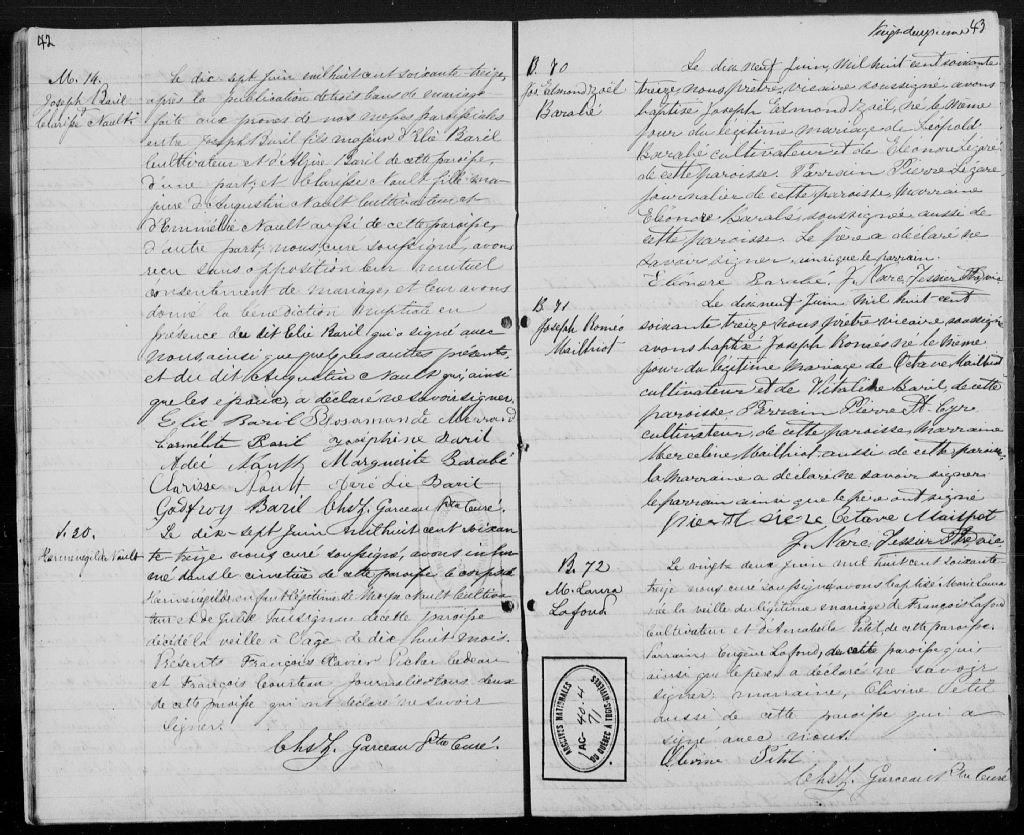 42
M. 14.
Joseph Baril
Clarisse Nault
Le dix-sept Juin mil huit cent soixante treize,
après la publication de trois bans de mariage
faite aux prones de nos messes paroissiales
entre Joseph Baril fils majeur d'Elie Baril
Cultivateur et d'Alzire Baril de cette paroisse,
d'une part; et Clarisse Nault fille ma-
jeure d'Augustin Nault Cultivateur et
d'Emmélie Nault aussi de cette paroisse,
d'autre part; nous, curé soussigné, avons
reçu sans opposition leur mutuel
consentement de mariage, et leur avons
donné la bénédiction nuptiale en
présence du dit Elie Baril qui a signé avec
nous, ainsi que quelques autres présents,
et du dit Augustin Nault qui, ainsi
que les epoux, a déclaré ne savoir signer.
Elie Baril Rosamonde Marrand
Carmélite Baril Joséphine Baril
Adée Nault Marguerite Barabé
Clarisse Nault Baril
Godfroy Baril Chs Z. Garceau Ptre Curé.
S. 20.
Herménégilde Nault
Le dix-sept Juin mil huit cent soixan-
te treize nous curé soussigné, avons inhu-
mé dans le cimetière de cette paroisse le corps de
Herménégilde enfant légitime de Moyse Nault Cultiva-
teur et de Julie de cette paroisse
décédé la veille à l'age de dix huit mois.
Présents François Xavier Bedeau
et François Courteau journaliers tous deux
de cette paroisse qui ont déclaré ne savoir
signer.
Chs Z. Garceau Ptre Curé.
Vingt deuxième 43
B. 70
Jos Edmond Noël
Barabé
Le dix neuf Juin, mil huit cent soixante
treize nous prêtre, vicaire soussigné avons
baptisé Joseph Edmond Noël, né le même
jour du légitime mariage de Léopold
Barabé cultivateur et de Eléonore Légaré
de cette paroisse. Parrain Pierre Légaré
journalier de cette paroisse, marraine
Eléonore Barabé, soussignée aussi de
cette paroisse. Le père a déclaré ne
savoir signer, ainsi que le parrain.
Eléonore Barabé, J. Narc. Tessier Ptre Vic
B. 71
Joseph Roméo
Mailhiot
Le dix neuf Juin mil huit cent
soixante treize nous prêtre vicaire soussigné
avons baptisé Joseph Roméo né le même
jour du légitime mariage de Octave Mailhiot
cultivateur et de Vitaline Baril de cette
paroisse. Parrain Pierre St-Cyr
cultivateur de cette paroisse marraine
Merceline Mailhiot aussi de cette paroisse
la marraine a déclaré ne savoir signer
le parrain ainsi que le père ont signé
Octave Mailhot
J. Narc. Tessier Ptre Vic
B. 72
M. Laura
Lafond
Le vingt deux juin mil huit cent soixante
treize nous curé soussigné avons baptisé Marie Laura
née la veille du légitime mariage de François Lafond
Cultivateur et d'Annabella Petit de cette paroisse.
Parrain, Eugène Lafond, de cette paroisse qui,
ainsi que le père a déclaré ne savoir
signer; marraine, Olivine Petit
aussi de cette paroisse qui a
signé avec nous.
Olivine Petit
Chs Z. Garceau Ptre Curé
ARCHIVES NATIONALES
IAC-40.4
71
DU QUÉBEC À TROIS-RIVIÈRES